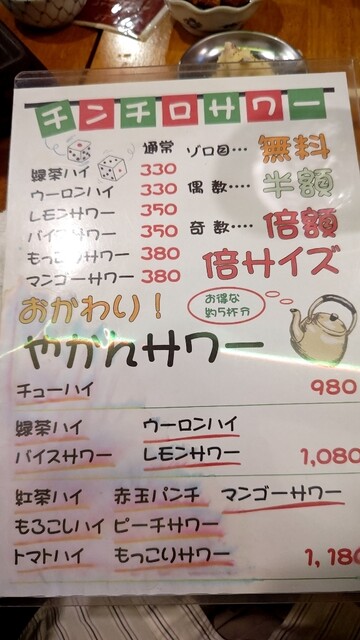 チンチロサワー
通常 ゾロ目… 無料
緑茶ハイ 330
ウーロンハイ 330 偶数…. 半額
レモンサワー 350
バイスサワー 350 奇数…. 倍額
もっこりサワー 380 倍サイズ
マンゴーサワー 380
おかわり！ お得な
約5杯分
やかんサワー
チューハイ 980
緑茶ハイ ウーロンハイ
バイスサワー レモンサワー 1,080
紅茶ハイ 赤玉パンチ マンゴーサワー
もろこしハイ ピーチサワー
トマトハイ もっこりサワー 1,180